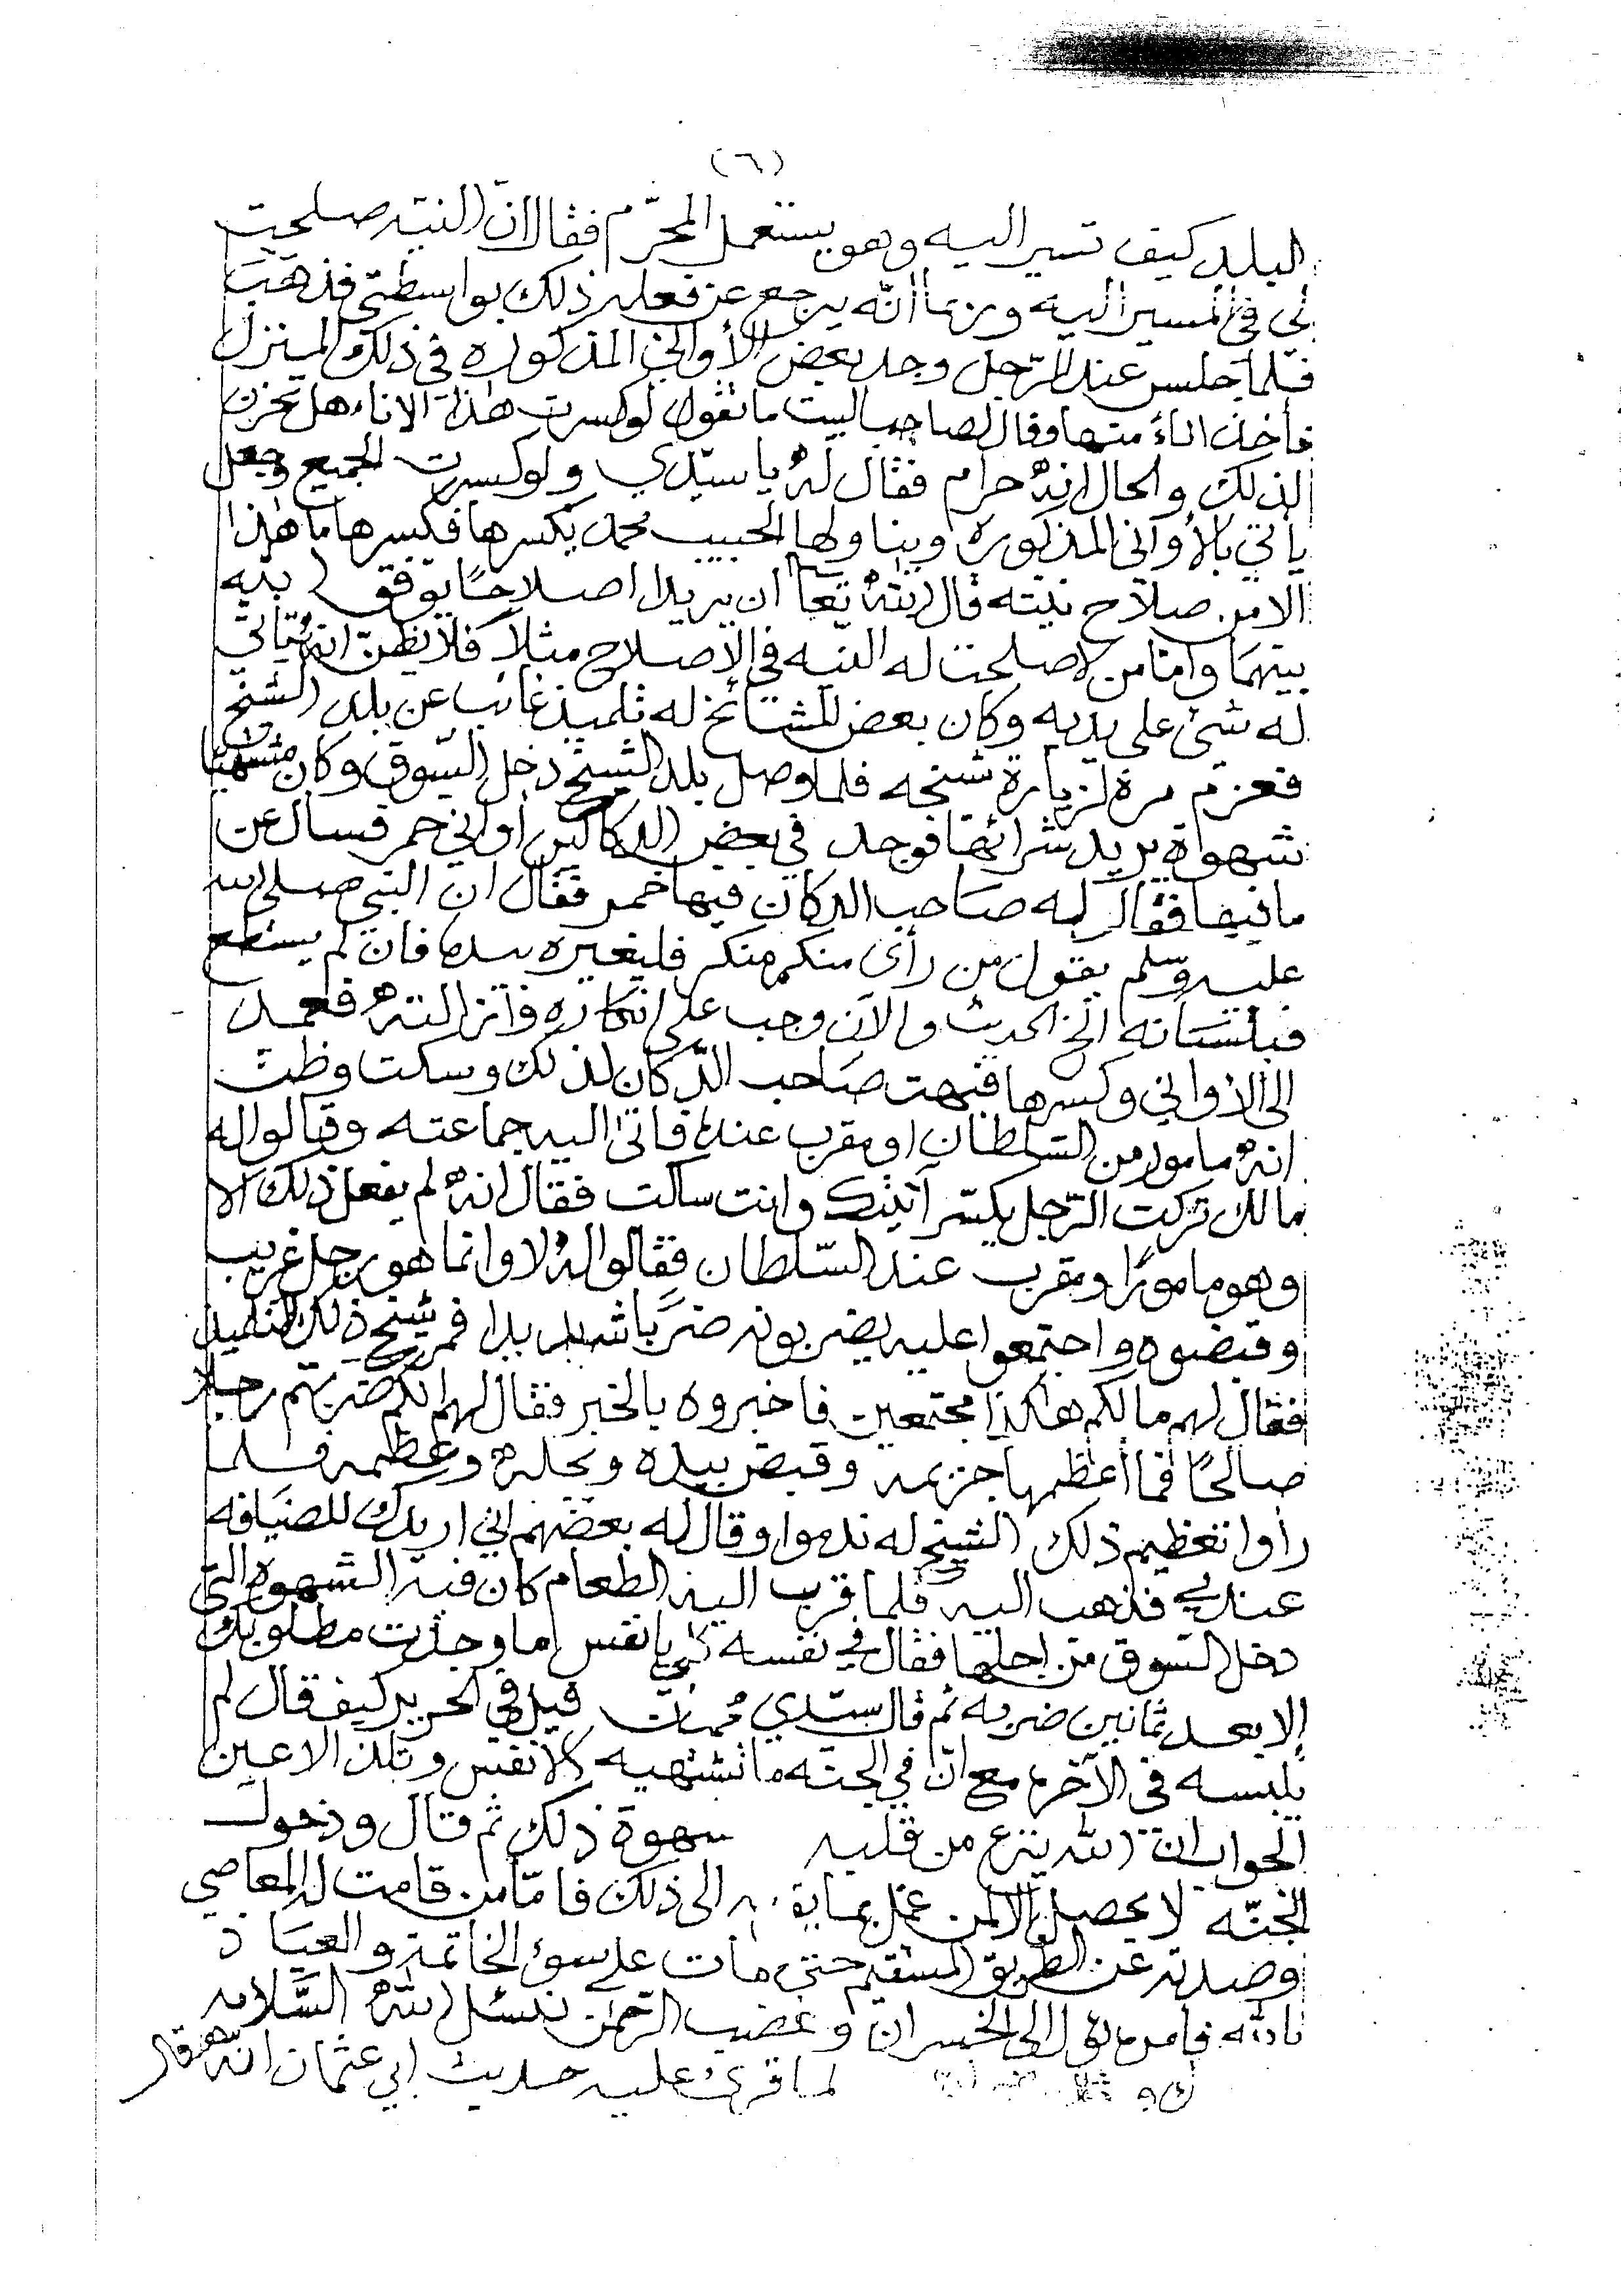 (٦)
البلد كيف تسير اليه وهو يستعمل المحرّم فقال ان النيّه صلحت
لي في المسير اليه وربما انّه يرجع عن فعله ذلك بواسطتي فذهب
فلما جلس عند الرّجل وجد بعض الأواني المذكوره في ذلك المنزل
فأخذ اناءً منها وقال لصاحب البيت ما تقول لو كسرت هذا الاناء هل تحزن
لذلك والحال انه حرام فقال له يا سيّدي ولو كسرت الجميع وجعل
يأتي بالأواني المذكوره ويناولها الحبيب محمد يكسرها فكسرها ما هذا
الا من صلاح نيته قال الله تعا ان يريدا اصلاحًا يوفق الله
بينهما وامّا من لا صلحت له النيه في الاصلاح مثلا فلا يظنّ انه يتاتّى
له شئ على يديه وكان بعض المشائخ له تلميذ غائب عن بلد الشيخ
فعزم مرة لزيارة شيخه فلما وصل بلد الشيخ دخل السّوق وكان مشتهيًا
شهوة يريد شرائها فوجد في بعض الدكاكين اواني خمر فسال عن
ما فيها فقال له صاحب الدكان فيها خمر فقال ان النبي صلى الله
عليه وسلم يقول من رأى منكم منكر فليغيره بيده فان لم يستطع
فبلسانه الخ الحديث والآن وجب علي انكاره فعمد
الى الأواني وكسرها فبهت صاحب الدّكان لذلك وسكت وظنّ
انه مامور من السّلطان او مقرب عنده فاتى اليه جماعته وقالوا له
مالك تركت الرّجل يكسّر آنيتك وانت ساكت فقال انه لم يفعل ذلك الا
وهو مامور او مقرب عند السّلطان فقالوا له لا وانما هو رجل غريب
وقبضوه واجتمعوا عليه يضربونه ضربًا شديدا فمر شيخ ذلك التلميذ
فقال لهم مالكم هاكذا مجتمعين فاخبروه بالخبر فقال لهم انكم ضربتم رجلا
صالحًا فما أعظمها جريمه وقبض بيده وبجله وعظمه فلما
رأوا تعظيم ذلك الشيخ له ندموا وقال له بعضهم اني اريدك للضيافه
عندي فذهب اليه فلما قرب اليه الطعام كان فيه الشهوه التي
دخل السّوق من اجلها فقال في نفسه يا نفس اما وجدت مطلوبك
إلا بعد ثمانين ضربه ثم قال سيّدي قيل في الحرير كيف قال لم
يلبسه في الآخره مع انّ في الجنّه ما تشتهيه الأنفس وتلذ الاعين
الجواب انّ الله ينزع من قلبه شهوة ذلك ثم قال ودخول
الجنّه لا يحصل الا لمن عمل بما الى ذلك فامّا من قامت له المعاصي
وصدته عن الطريق المستقيم حتى مات على سوء الخاتمه والعياذ
بالله فامره يؤل الى الخسران وغضب الرّحمن نسئل الله السّلامه
لما قرئ عليه حديث ابي عثمان انّه قال